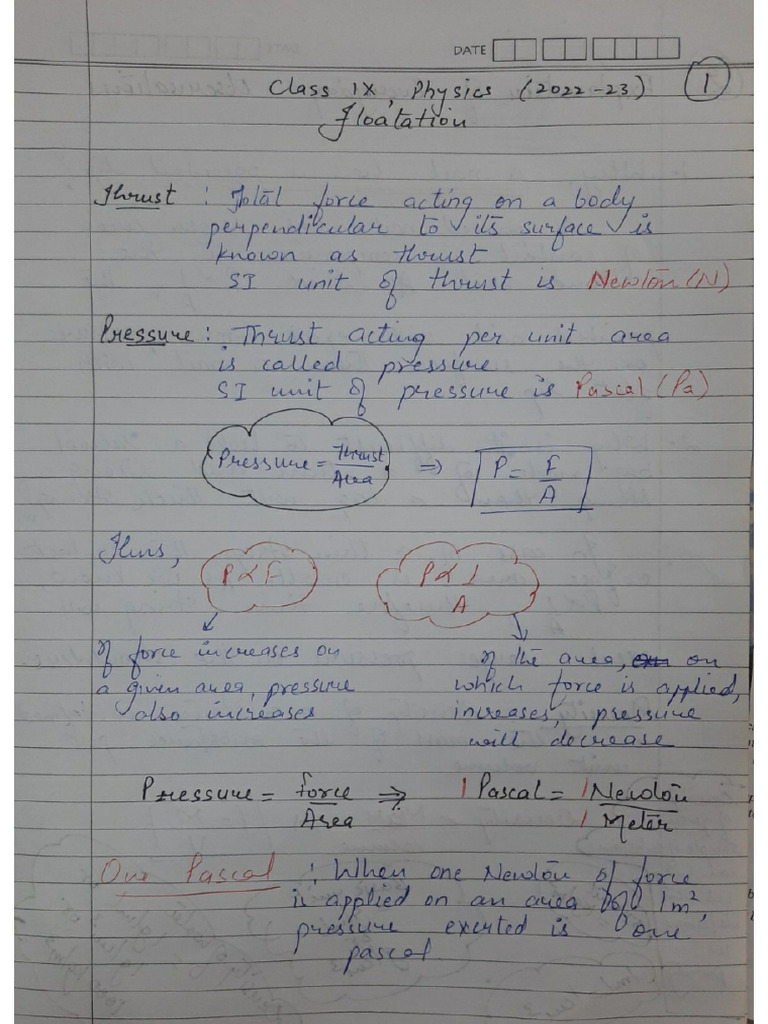 DATE
Class IX, Physics (2022-23) 1
Floatation
Thrust : Total force acting on a body
perpendicular to its surface is
known as thrust
SI unit of thrust is Newton (N)
Pressure : Thrust acting per unit area
is called pressure
SI unit of pressure is Pascal (Pa)
Pressure = Thrust / Area ⇒ P = F / A
Thus,
P ∝ F P ∝ 1 / A
If force increases on
a given area, pressure
also increases
If the area, on
which force is applied,
increases, pressure
will decrease
Pressure = force / Area ⇒ 1 Pascal = 1 Newton / 1 Meter
One Pascal : When one Newton of force
is applied on an area of 1m²,
pressure exerted is one
pascal.